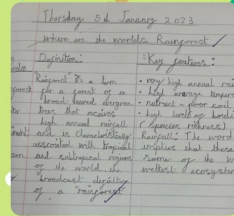 Thursday 5th January 2023
Where are the world's Rainforest
Definition:
Key features:
Rainforest is a term
for a forest of a
broad leaved evergreen
tree that receives
high annual rainfall
and is characteristically
associated with tropical
and subtropical regions
of the world. the
broadcast
of a "rainforest"
• very high annual rai
• high average temper
• nutrient - poor soil
• high levels of
(species richness)
Rainfall: The word
implies that these
some of the w
wettest ecosystem